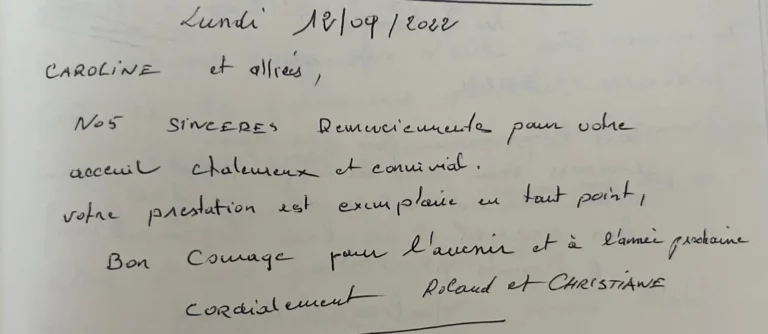 Lundi 12/09/2022
CAROLINE et alliés,
NOS SINCERES Remerciements pour votre
acceuil chaleureux et convivial.
votre prestation est exemplaire en tout point,
Bon Courage pour l'avenir et à l'année prochaine
CORdialement Roland et CHRISTIANE